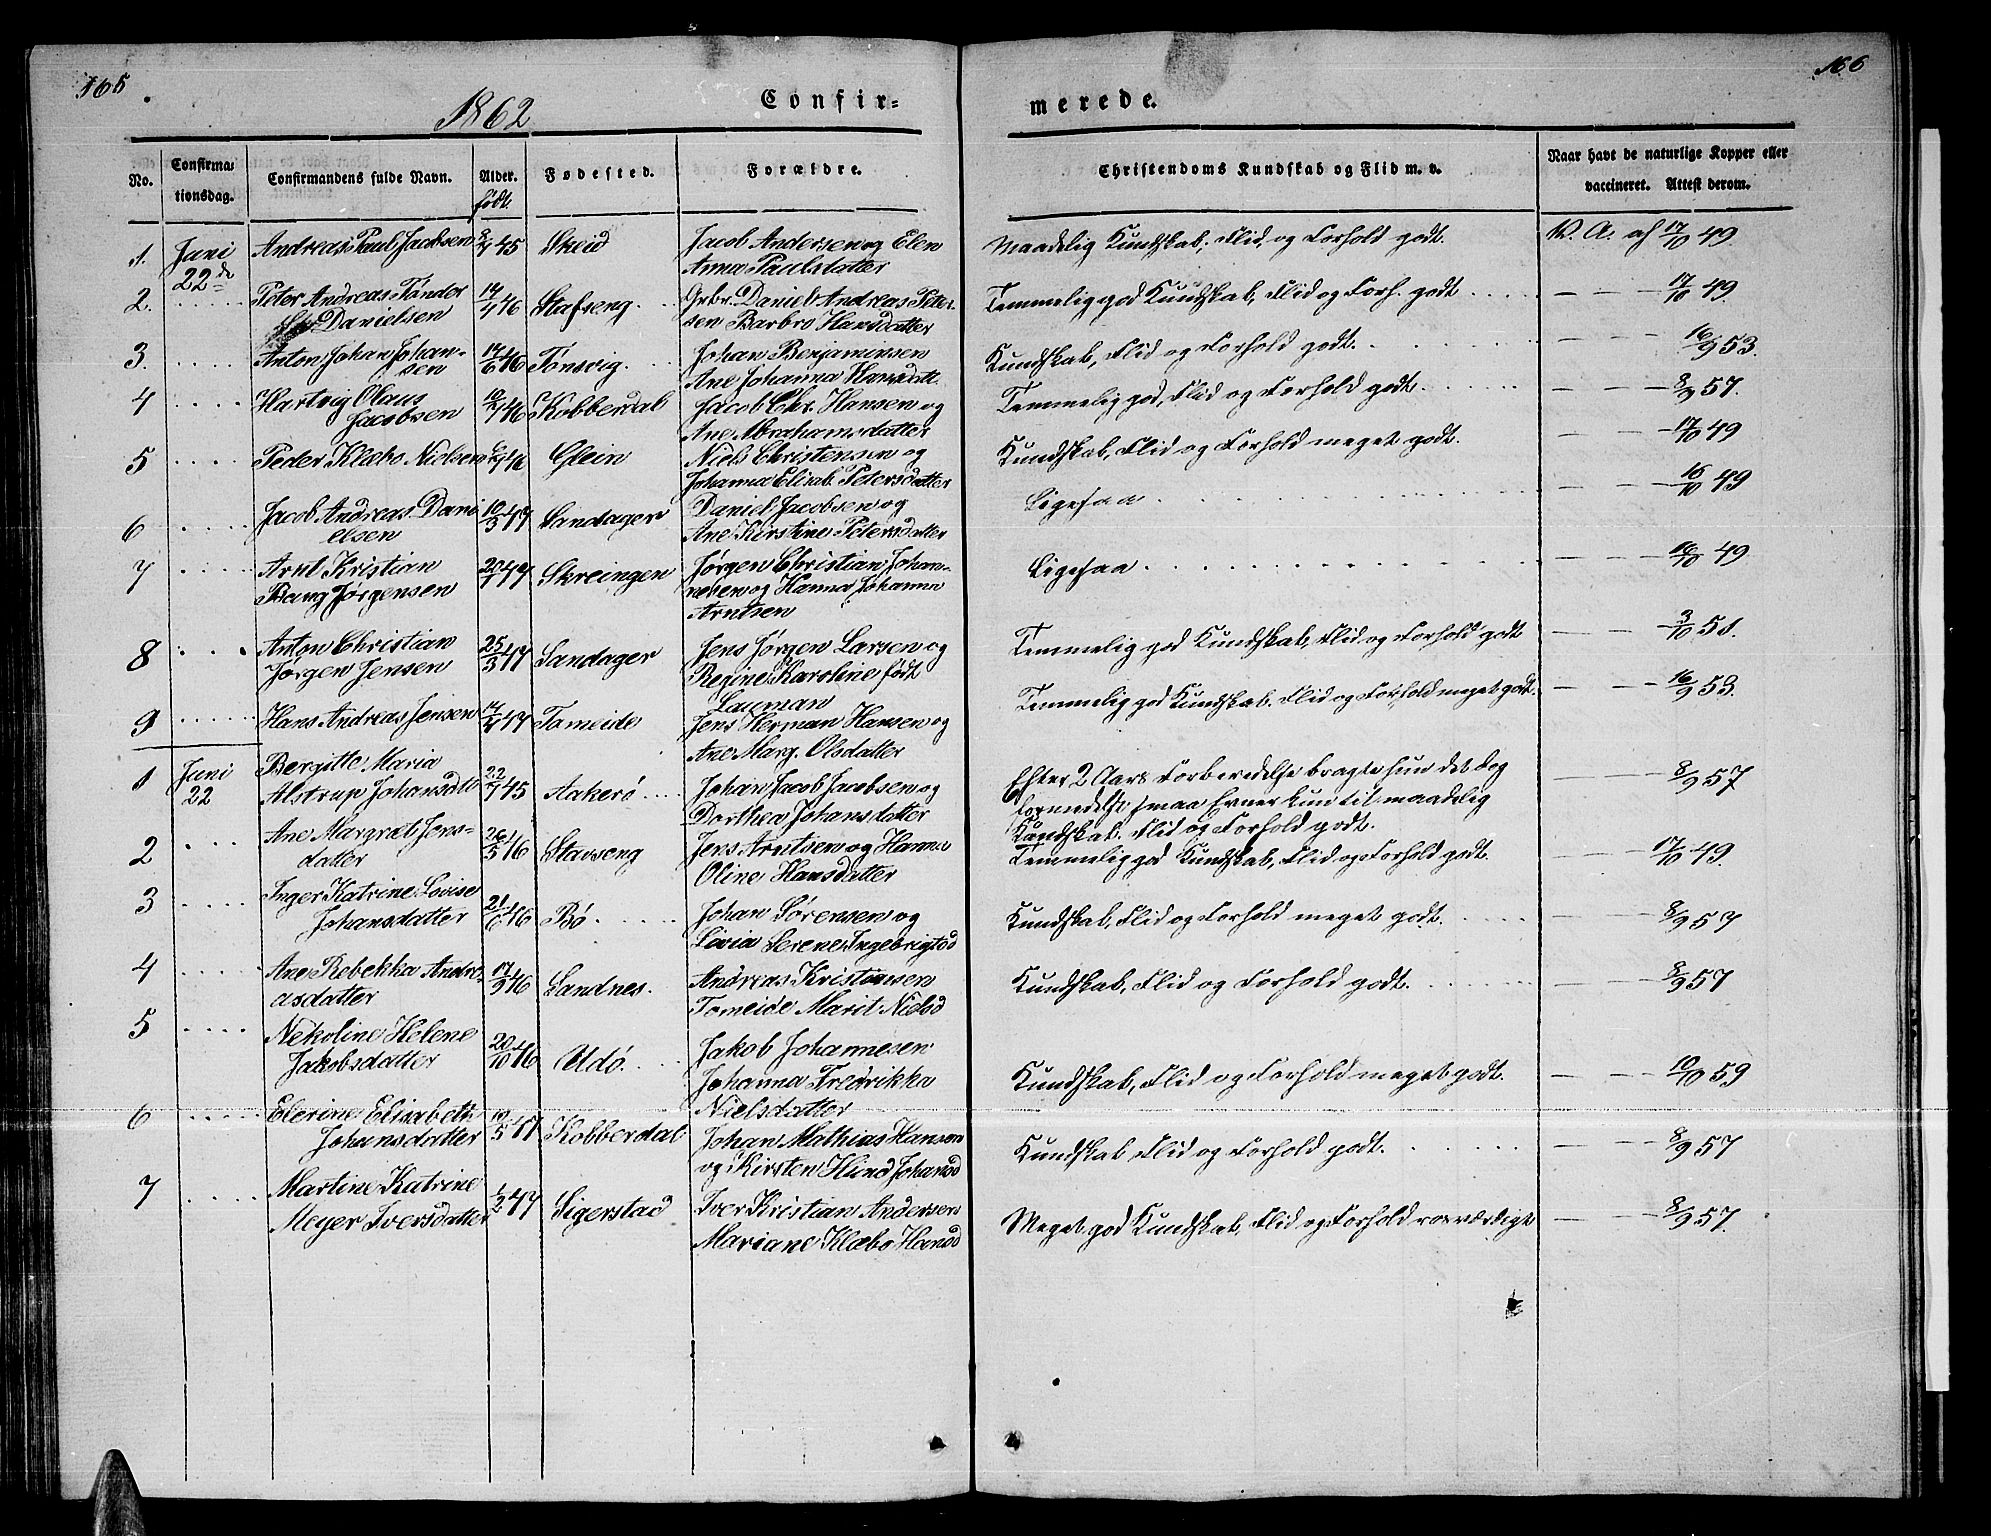 165
166
1862
Confir-
merede.
No.
Confirma-
tionsdag.
Confirmandens fulde Navn.
Alder.
født.
Fødested.
Forældre.
Christendoms Kundskab og Flid m. v.
Naar havt de naturlige Kopper eller
vaccineret. Attest derom.
1. Juni Andreas Paul Jacobsen 45 Skeid Jacob Andersen og Elen Maadelig Kundskab, Flid og Forhold godt. V. A. af 17/10 49
22de Anna Paulsdatter
2. Peter Andreas Tønder 46 Stafseng Grbr. Daniel Andreas Peter- Temmelig god Kundskab, Flid og Forh. godt — — 17/10 49
Danielsen sen Barbro Hansdatter
3. Anton Johan Johan- 14/6 46 Tønsvig Johan Benjaminsen Kundskab, Flid og Forhold godt. — — 16/9 53.
sen Ane Johanna Hansdatt.
4 Hartvig Olaus 46 Kobberdal Jacob Chr. Hansen og Temmelig god, Flid og Forhold godt — — 8/9 57.
Jacobsen Ane Abrahamsdatter
5 Peder Klæbo Nielsen 46 Glein Niels Christensen og Kundskab, Flid og Forhold meget godt. — — 17/10 49
Johanna Elisab. Petersdatter
6 Jacob Andreas Dani 10/3 47 Sandager Daniel Jacobsen og Ligesaa — — 16/10 49
elsen Ane Kirstine Petersdatter
7 Arnt Kristian 20/1 47 Skreingen Jørgen Christian Johan- Ligesaa — — 16/10 49
Bang Jørgensen nesen og Hanna Johanna
Arntsen
8 Anton Christian 25/3 47 Sandager Jens Jørgen Larsen og Temmelig god Kundskab, Flid og Forhold godt — — 3/10 51.
Jørgen Jensen Regine Karoline født
Lauman
9 Hans Andreas Jensen 47 Tomeide Jens Herman Hansen og Temmelig god Kundskab. Flid og Forhold meget godt. — — 16/9 53.
Ane Marg. Olsdatter
1 Juni Bergitte Maria 22/7 45 Aakerø Johan Jacob Jacobsen og Efter 2 Aars Forberedelse bragte hun det dog — — 8/9 57
22 Alstrup Johansdtt Dorthea Johansdatter formedelst smaa Evner kun til maadelig
Kundskab. Flid og Forhold godt.
2 Ane Margret Jens- 26/5 46 Stavseng Jens Arntsen og Hanna Temmelig god Kundskab, Flid og Forhold godt. — — 17/10 49.
datter Oline Hansdatter
3 Inger Katrine Lovise 21/6 46 Bø Johan Sørensen og Kundskab, Flid og Forhold meget godt. — — 8/9 57
Johansdatter Lovia Serene Ingebrigtsd
4 Ane Rebekka Andre- 17/9 46 Sandnes. Andreas Kristansen Kundskab, Flid og Forhold godt. — — 8/9 57
asdatter Tomeide Marit Nielsd
5 Nekoline Helene 20/10 46 Udø. Jakob Johannesen Kundskab, Flid og Forhold meget godt. — — 10/10 59
Jakobsdatter Johanna Fredrikka
Nielsdatter
6 Elerine Elisabeth 10/5 47 Kobberdal Johan Mathias Hansen Kundskab, Flid og Forhold godt. — — 8/9 57
Johansdatter og Kirsten Hind Johansd
7 Martine Katrine 1/2 47 Sigerstad Iver Kristian Andersen Meget god Kundskab, Flid og Forhold rosværdigt — — 8/9 57.
Meyer Iversdatter Mariane Klæbo Hansd